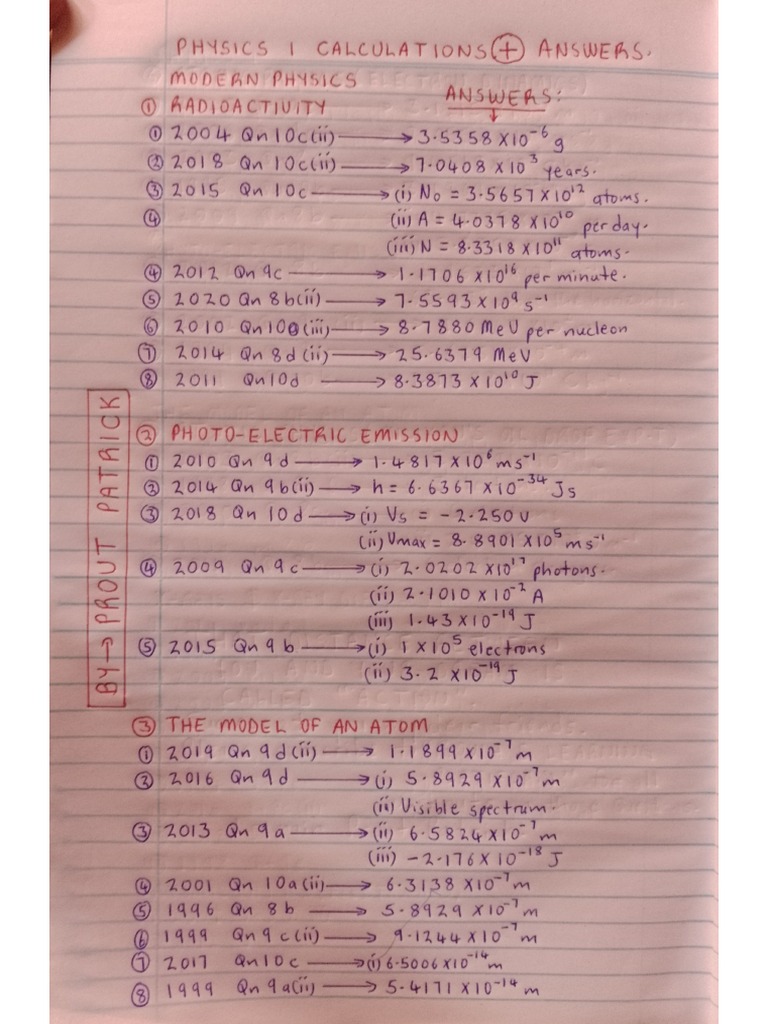 PHYSICS 1 CALCULATIONS + ANSWERS.
MODERN PHYSICS
① RADIOACTIVITY ANSWERS:
① 2004 Qn 10c(ii) → 3.5358 X10⁻⁶ g
② 2018 Qn 10c(ii) → 7.0408 X 10³ years.
③ 2015 Qn 10c → (i) N₀ = 3.5657 X 10¹² atoms.
④ (ii) A = 4.0378 X 10¹⁰ per day.
(iii) N = 8.3318 X 10¹¹ atoms.
④ 2012 Qn 9c → 1.1706 X10¹⁶ per minute.
⑤ 2020 Qn 8b(ii) → 7.5593 X 10⁹ s⁻¹
⑥ 2010 Qn 10c(iii) → 8.7880 MeV per nucleon
⑦ 2014 Qn 8d(ii) → 25.6379 MeV
⑧ 2011 Qn 10d → 8.3873 X 10¹⁰ J
② PHOTO-ELECTRIC EMISSION
① 2010 Qn 9d → 1.4817 X 10⁶ ms⁻¹
② 2014 Qn 9b(ii) → h = 6.6367 X 10⁻³⁴ Js
③ 2018 Qn 10d → (i) Vs = -2.250V
(ii) Umax = 8.8901 X10⁵ ms⁻¹
④ 2009 Qn 9c → (i) 2.0202 X10¹⁷ photons.
(ii) 2.1010 X 10⁻² A
(iii) 1.43 X 10⁻¹⁹ J
⑤ 2015 Qn 9b → (i) 1 X 10⁵ electrons
(ii) 3.2 X10⁻¹⁹ J
③ THE MODEL OF AN ATOM
① 2019 Qn 9d(ii) → 1.1899 X10⁻⁷ m
② 2016 Qn 9d → (i) 5.8929 X 10⁻⁷ m
(ii) Visible spectrum.
③ 2013 Qn 9a → (ii) 6.5824 X 10⁻⁷ m
(iii) -2.176 X 10⁻¹⁸ J
④ 2001 Qn 10a(ii) → 6.3138 X10⁻⁷ m
⑤ 1996 Qn 8b → 5.8929 X10⁻⁷ m
⑥ 1999 Qn 9c(ii) → 9.1244 X10⁻⁷ m
⑦ 2017 Qn 10c → (i) 6.5006 X10⁻¹⁴ m
⑧ 1999 Qn 9a(ii) → 5.4171 X10⁻¹⁴ m
BY → PROUT PATRICK